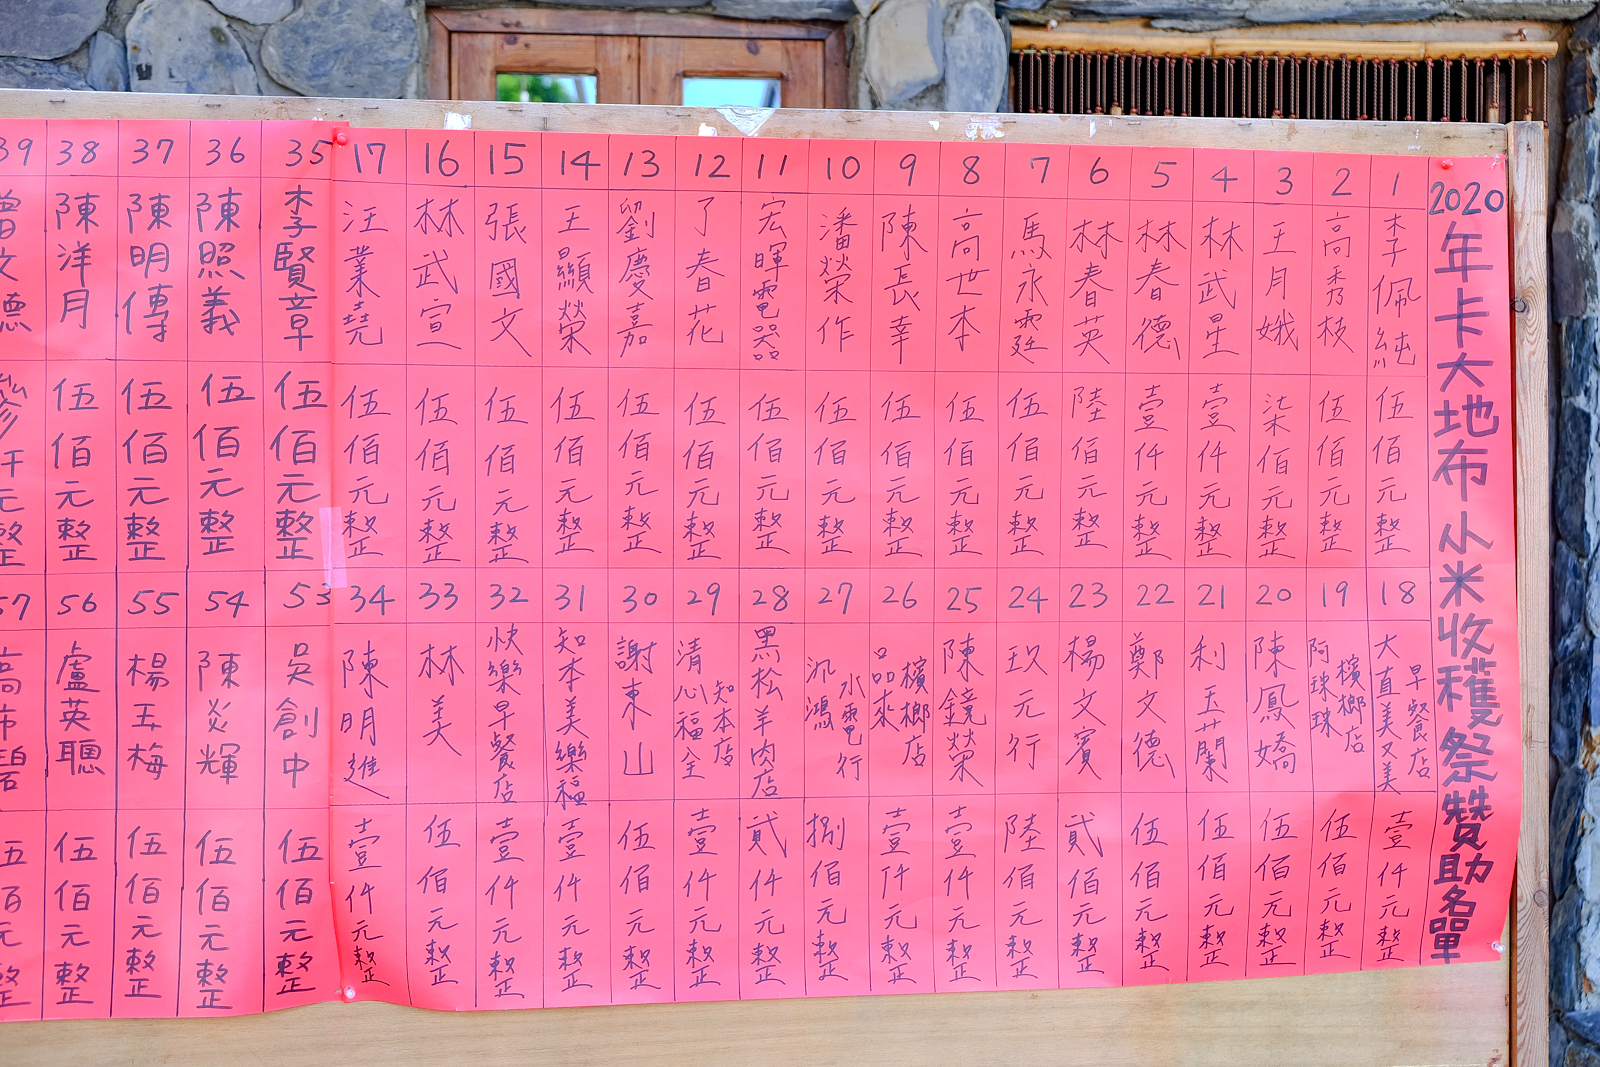 2020年卡大地布小米收穫祭贊助名單
1 李佩純 伍佰元整
2 高秀枝 伍佰元整
3 王月娥 柒佰元整
4 林武星 壹仟元整
5 林春德 壹仟元整
6 林春英 陸佰元整
7 馬永霆 伍佰元整
8 高世本 伍佰元整
9 陳長幸 伍佰元整
10 潘榮作 伍佰元整
11 宏暉電器 伍佰元整
12 丁春花 伍佰元整
13 劉慶嘉 伍佰元整
14 王顯榮 伍佰元整
15 張國文 伍佰元整
16 林武宣 伍佰元整
17 汪業堯 伍佰元整
18 早餐店 大直美又美 壹仟元整
19 檳榔店 阿珠珠 伍佰元整
20 陳鳳嬌 伍佰元整
21 利玉蘭 伍佰元整
22 鄭文德 伍佰元整
23 楊文賓 貳佰元整
24 玖元行 陸佰元整
25 陳鏡榮 壹仟元整
26 檳榔店 品來 壹仟元整
27 水電行 汎鴻 捌佰元整
28 黑松羊肉店 貳仟元整
29 知本店 清心福全 壹仟元整
30 謝東山 伍佰元整
31 知本美樂福 壹仟元整
32 快樂早餐店 壹仟元整
33 林美 伍佰元整
34 陳明進 壹仟元整
35 李賢章 伍佰元整
36 陳照義 伍佰元整
37 陳明傳 伍佰元整
38 陳洋月 伍佰元整
39 曾文德 仟元整
53 吳創中 伍佰元整
54 陳炎輝 伍佰元整
55 楊玉梅 伍佰元整
56 盧英聰 伍佰元整
57 高布 伍佰元整